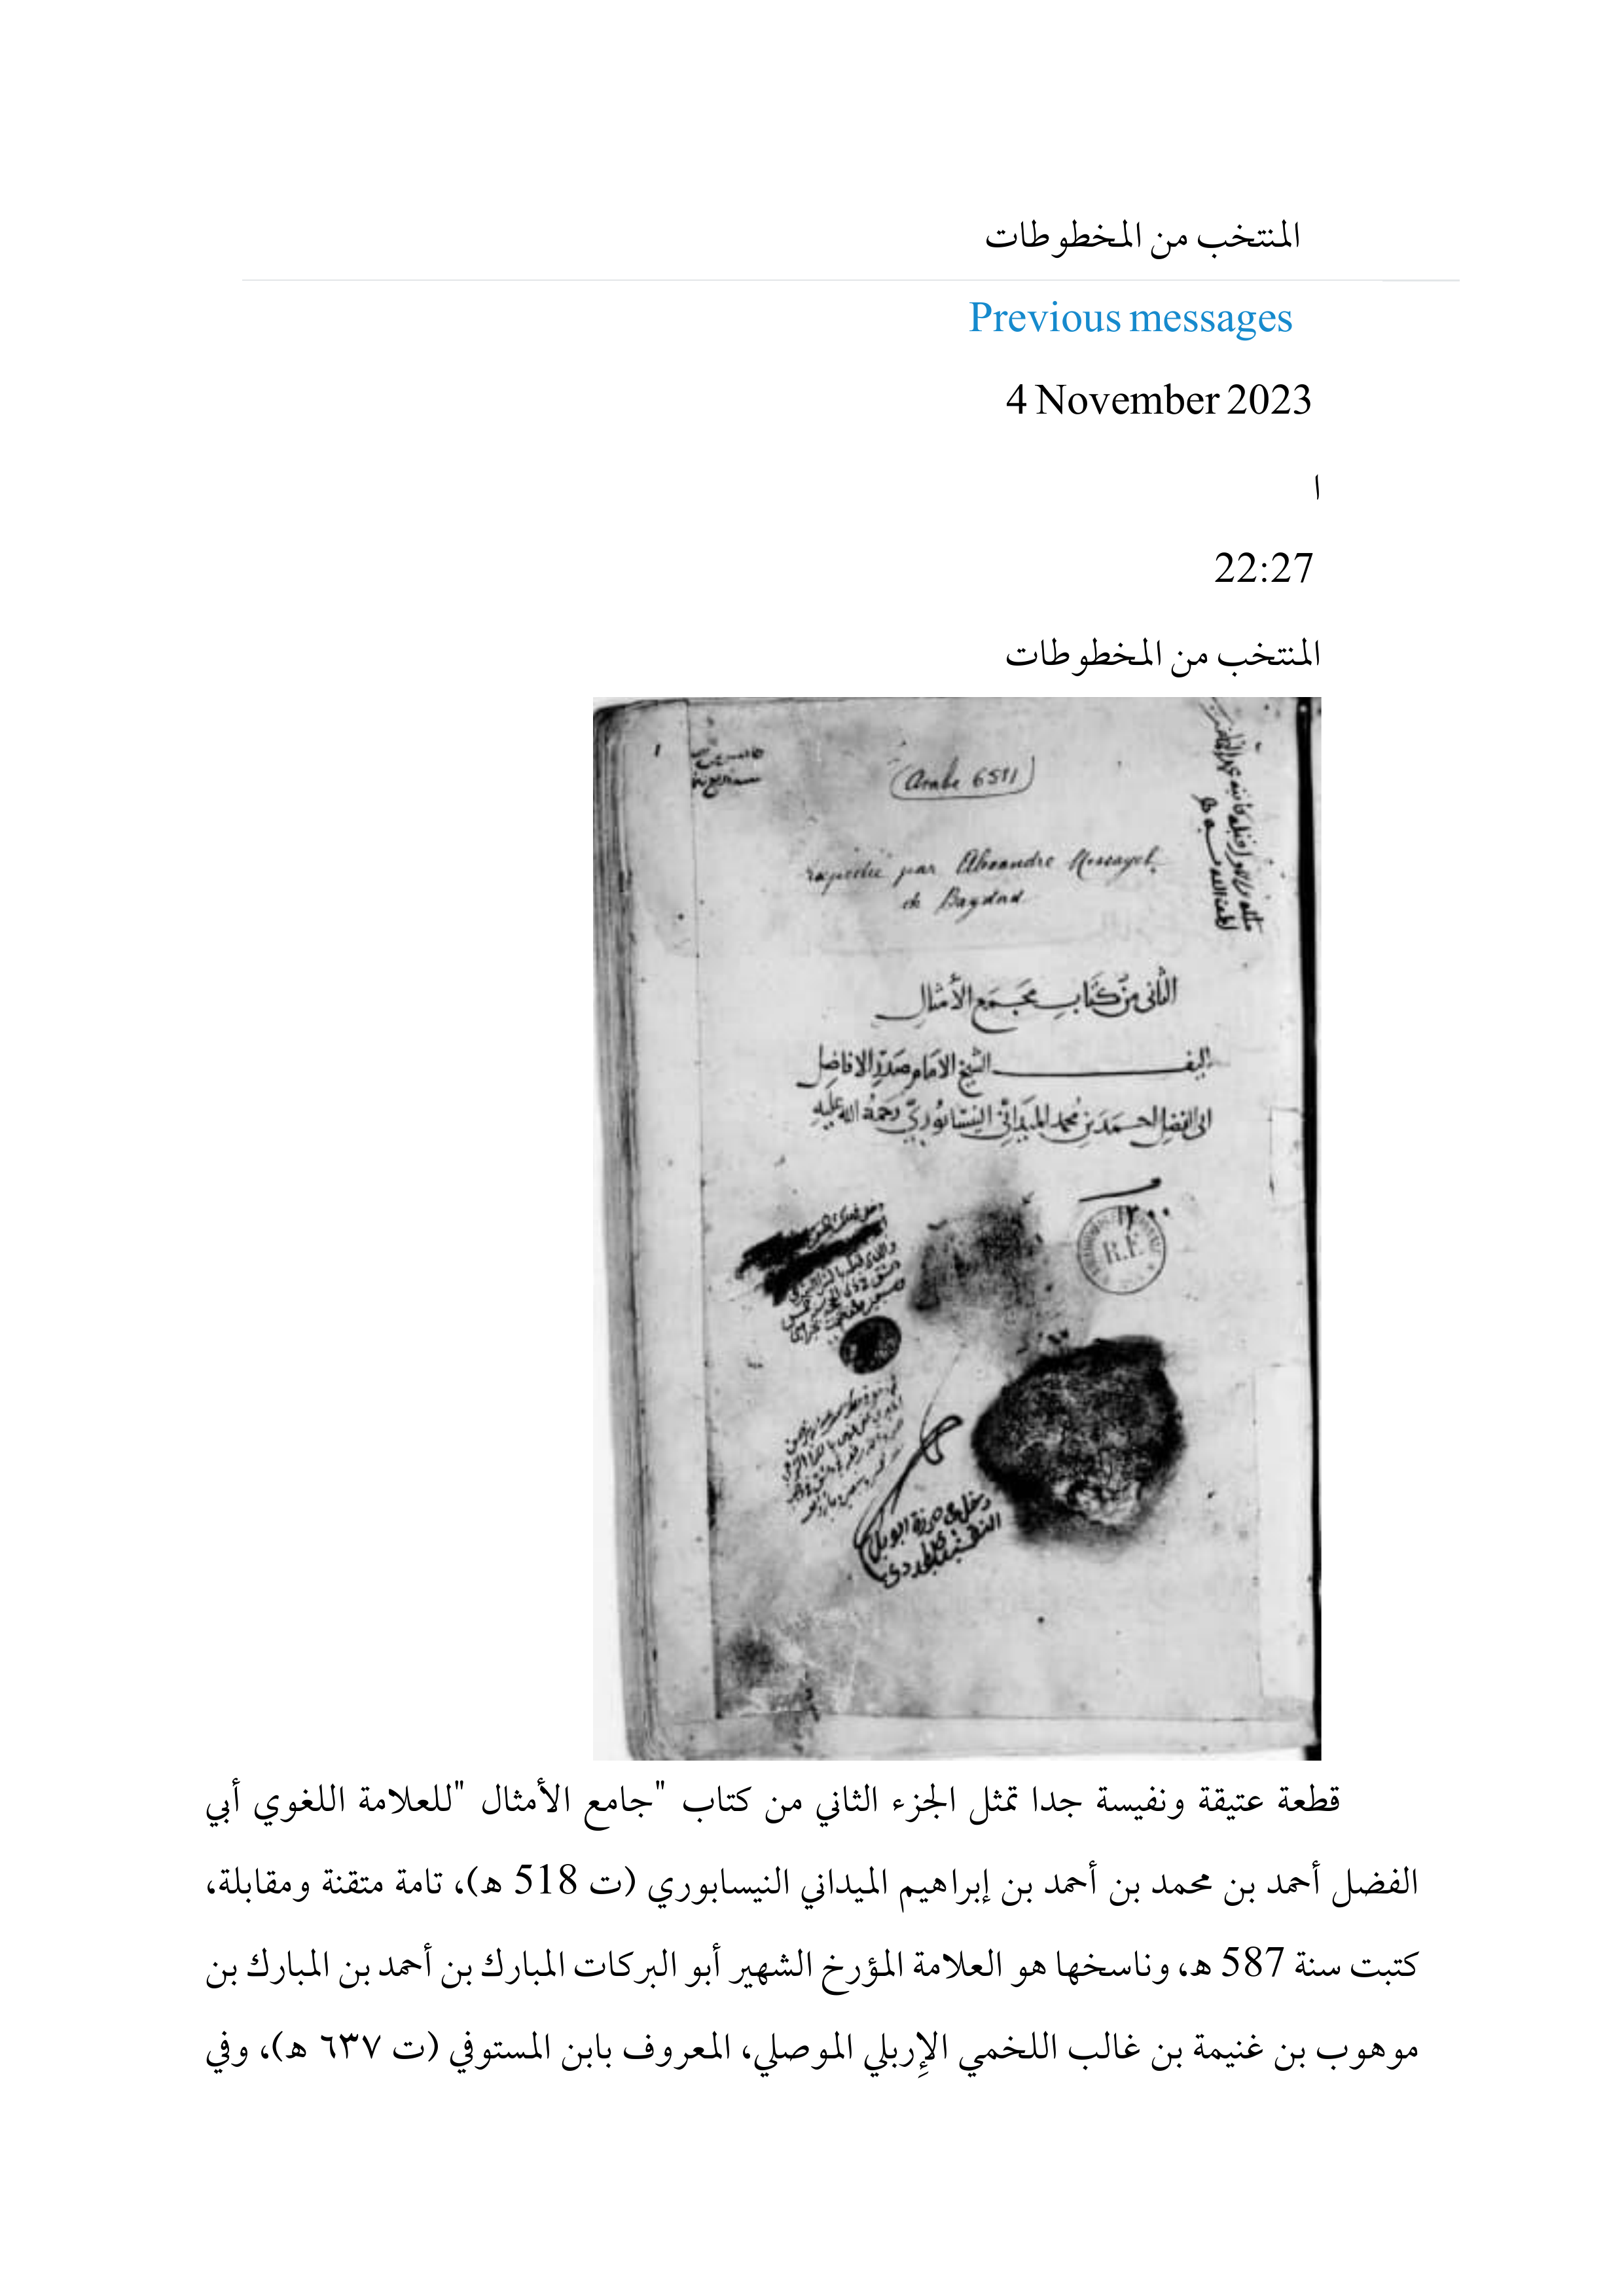 المنتخب من المخطوطات
Previous messages
4 November 2023
ا
22:27
المنتخب من المخطوطات
1
(Arabe 6511)
par Alexandre Messayeh
de Bagdad
الثاني من كتاب مجمع الأمثال
تأليف الشيخ الامام صدر الافاضل
ابى الفضل احمد بن محمد الميداني النيسابوري رحمة الله عليه
١٢٠٠
R.F
دخل في حوزة ابو بكر
النقشبندي
قطعة عتيقة ونفيسة جدا تمثل الجزء الثاني من كتاب "جامع الأمثال "للعلامة اللغوي أبي
الفضل أحمد بن محمد بن أحمد بن إبراهيم الميداني النيسابوري (ت 518 ه)، تامة متقنة ومقابلة،
كتبت سنة 587 ه، وناسخها هو العلامة المؤرخ الشهير أبو البركات المبارك بن أحمد بن المبارك بن
موهوب بن غنيمة بن غالب اللخمي الإربلي الموصلي، المعروف بابن المستوفي (ت ٦٣٧ ه)، وفي